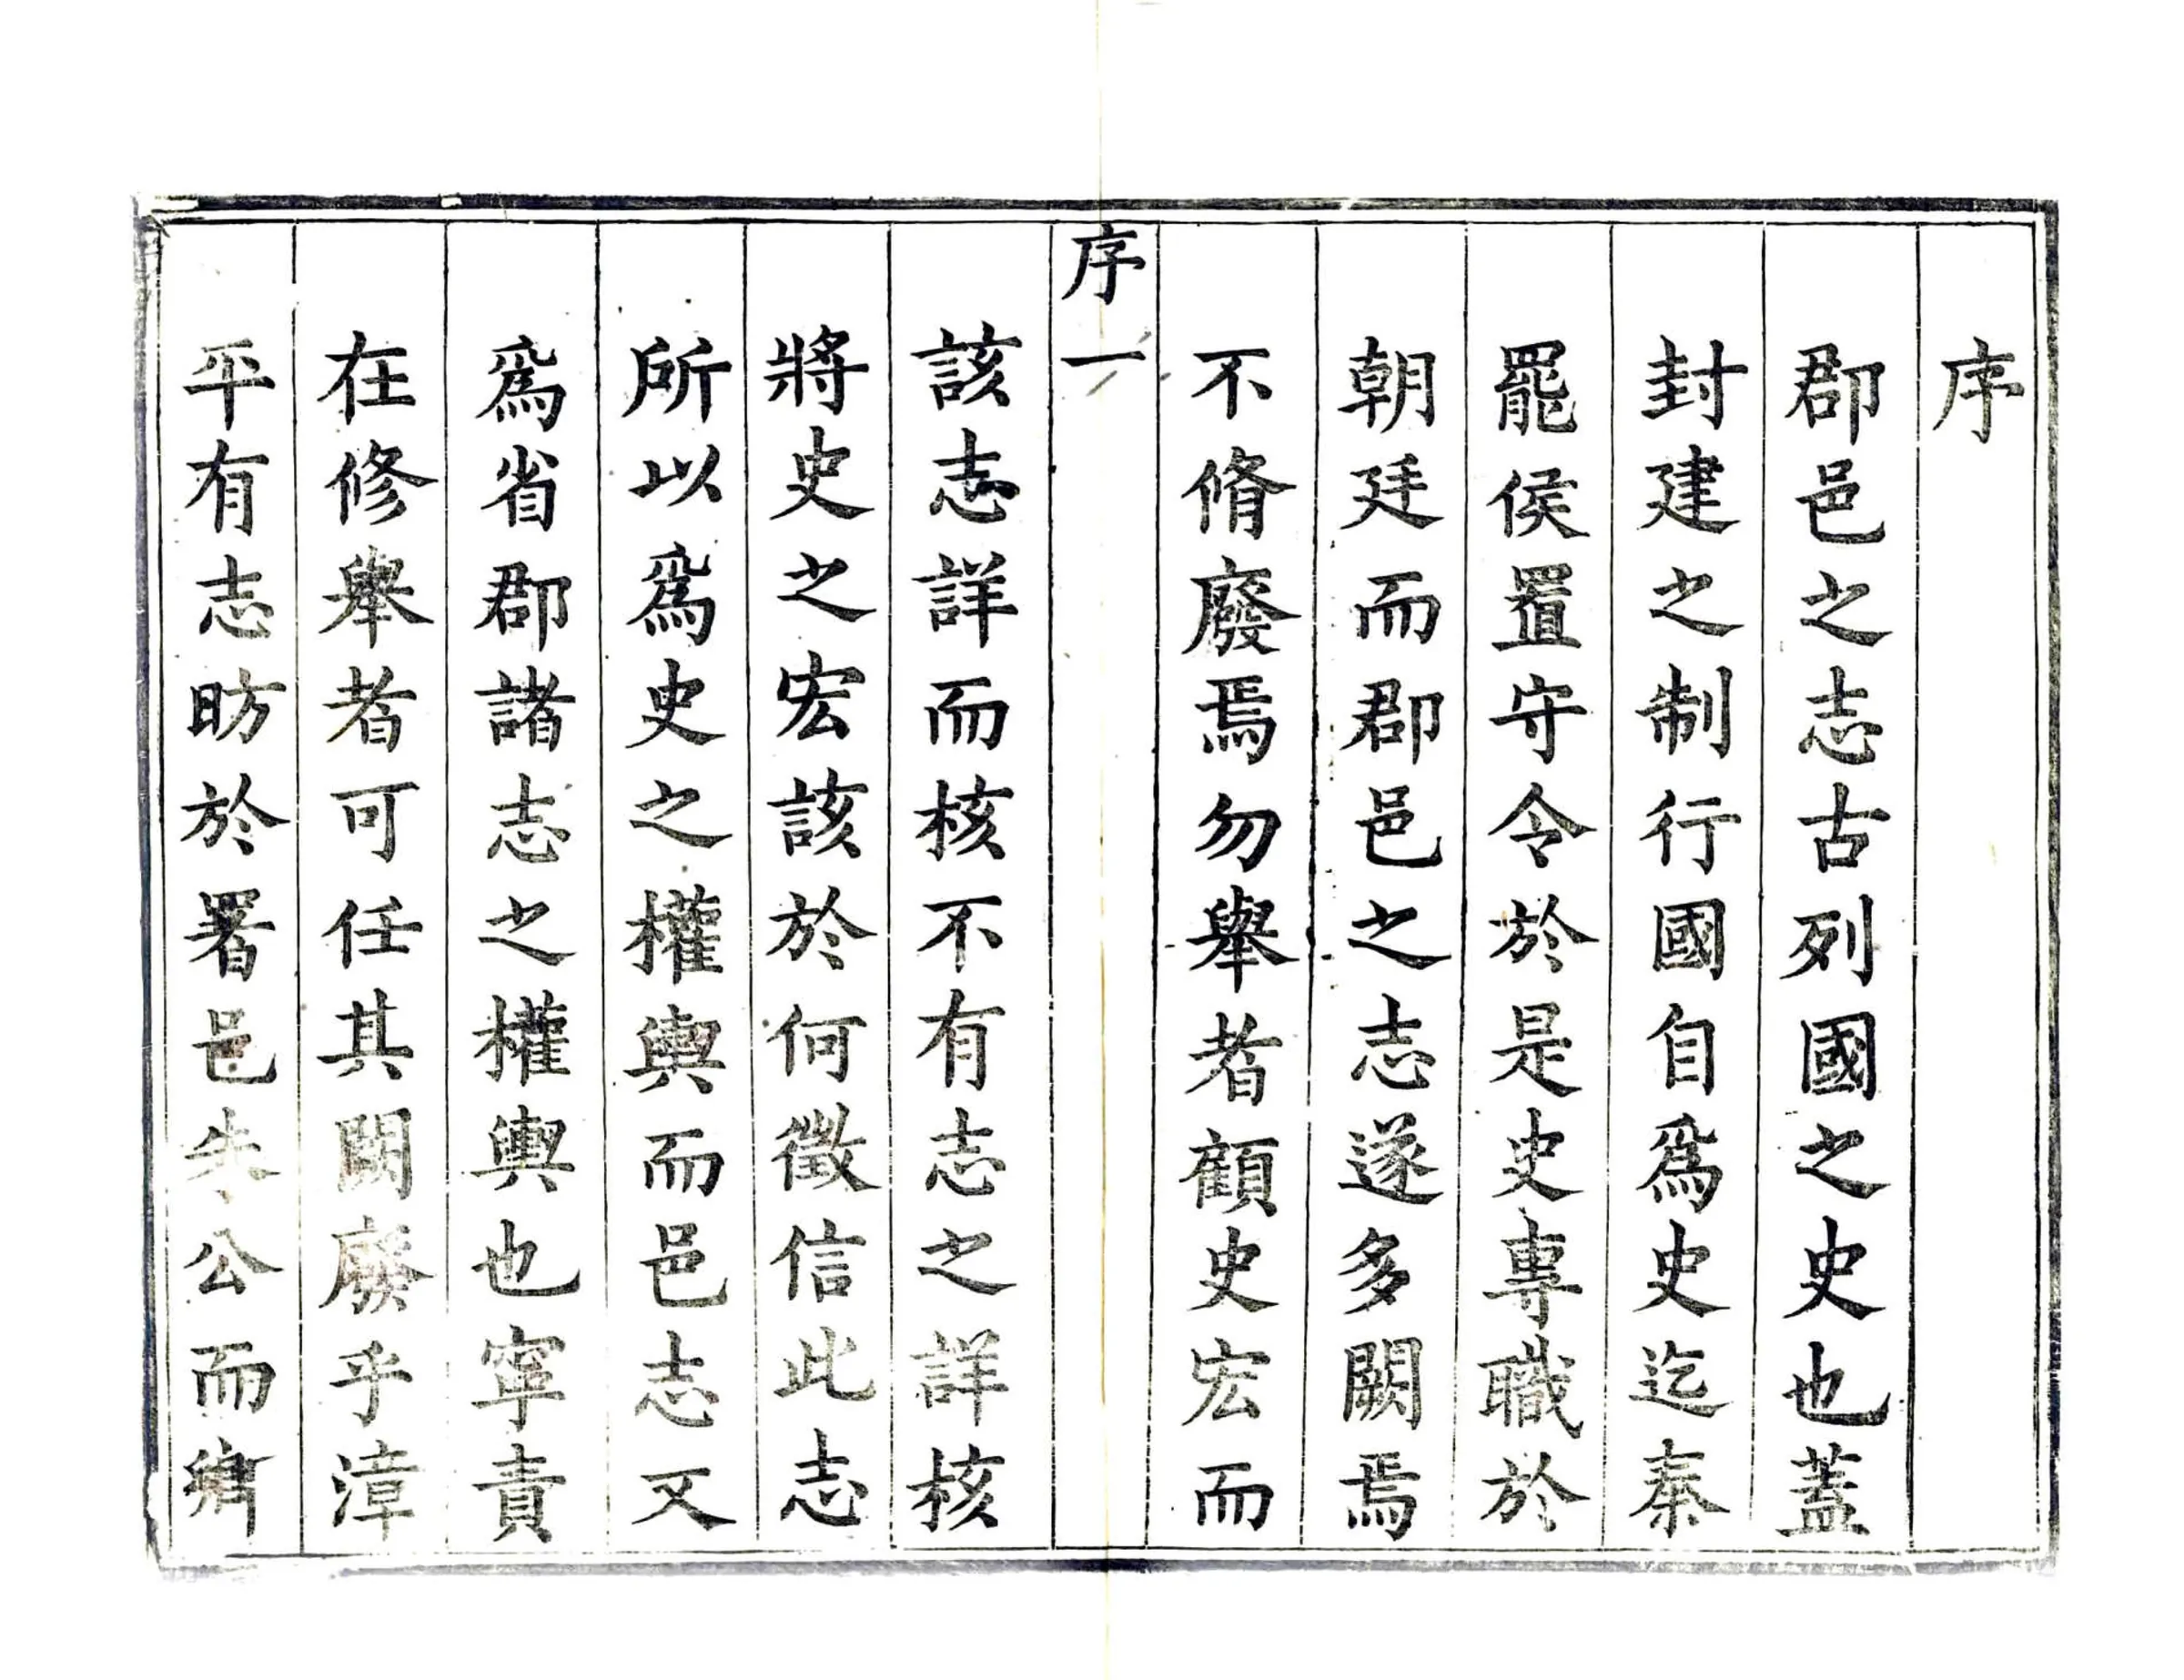 序
郡邑之志古列國之史也蓋
封建之制行國自爲史迄秦
罷侯置守令於是史專職於
朝廷而郡邑之志遂多闕焉
不脩廢焉勿舉者顧史宏而
序 一
該志詳而核不有志之詳核
將史之宏該於何徵信此志
所以爲史之權輿而邑志又
爲省郡諸志之權輿也寧責
在修舉者可任其闕廢乎漳
平有志昉於署邑朱公而